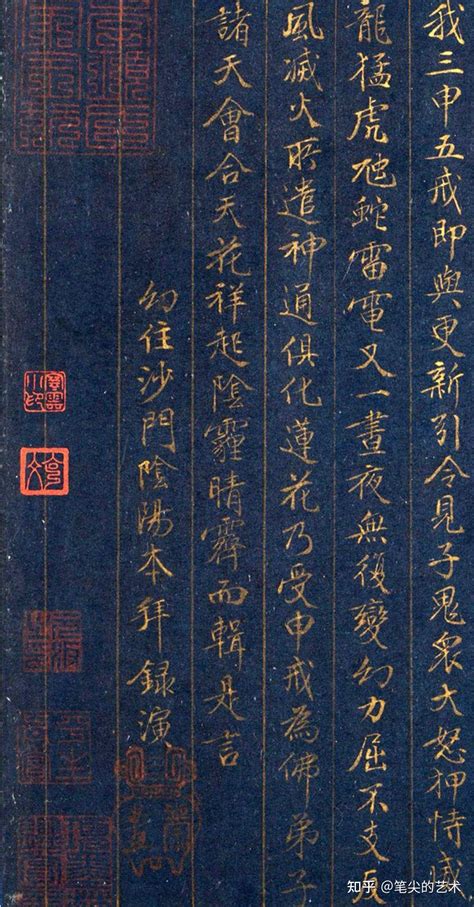 我三申五戒即與更新引令見子鬼衆大怒狎恃威
龍猛虎虺蛇雷電又一晝夜無復變幻力屈不支反
風滅火所遣神通俱化蓮花乃受申戒為佛弟子
諸天會合天花祥起陰霾晴霽而輯是言
幻住沙門陰陽本拜錄演
知乎 @笔尖的艺术